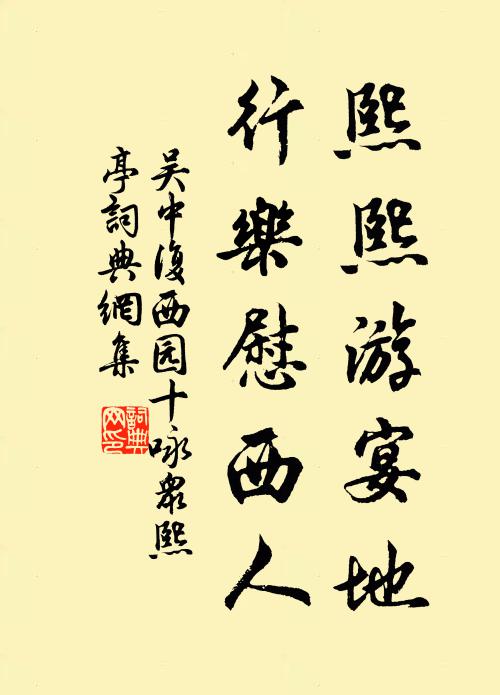 熙熙游宴地
行樂慰西人
吴中復西园十咏眾熙
亭詞典網集
詞典网印